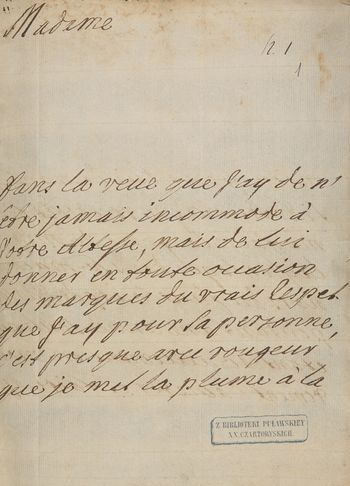 Madame
n. 1
1
Dans la veue que J'ay de n'
être jamais incommode à
Votre Altesse, mais de lui
donner en toute ocasion
des marques du vrais respet
que J'ay pour sa personne,
c'est presque avec rougeur
que je met la plume à la
Z BIBLIOTEKI PUŁAWSKIEY
XX. CZARTORYSKICH